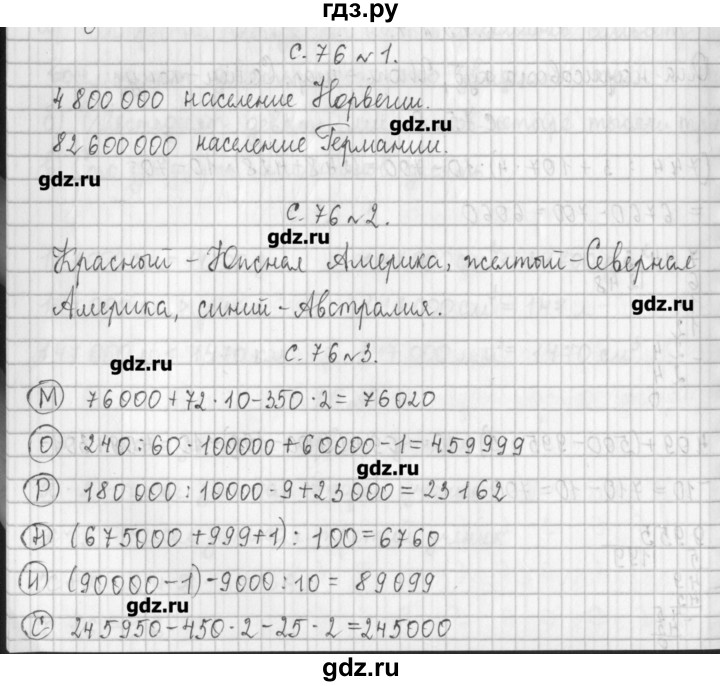 гдз.ру
с. 76 №1.
4 800 000 население Норвегии.
gdz.ru
82 600 000 население Германии.
gdz.ru
с. 76 №2.
gdz.ru
Красный - Южная Америка, желтый - Северная
Америка, синий - Австралия.
gdz.ru
с. 76 №3.
gdz.ru
М 76000 + 72 · 10 - 350 · 2 = 76020
О 240 : 60 · 100000 + 60000 - 1 = 459999
gdz.ru
Р 180 000 : 10000 · 9 + 23000 = 23162
Н (675000 + 999 + 1) : 100 = 6760
И (90000 - 1) - 9000 : 10 = 89099
gdz.ru
С 245950 - 450 · 2 - 25 · 2 = 245000
gdz.ru